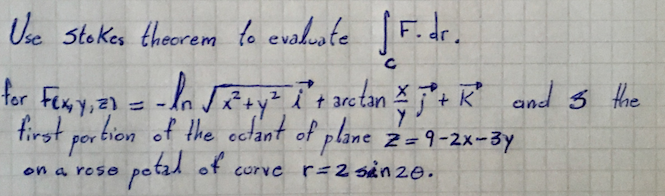 Use stokes theorem to evaluate ∫_C F.dr.
for F(x,y,z) = -ln √(x²+y²) i⃗ + arctan x/y j⃗ + k⃗ and S the
first portion of the octant of plane z=9-2x-3y
on a rose petal of curve r=2 sin2θ.